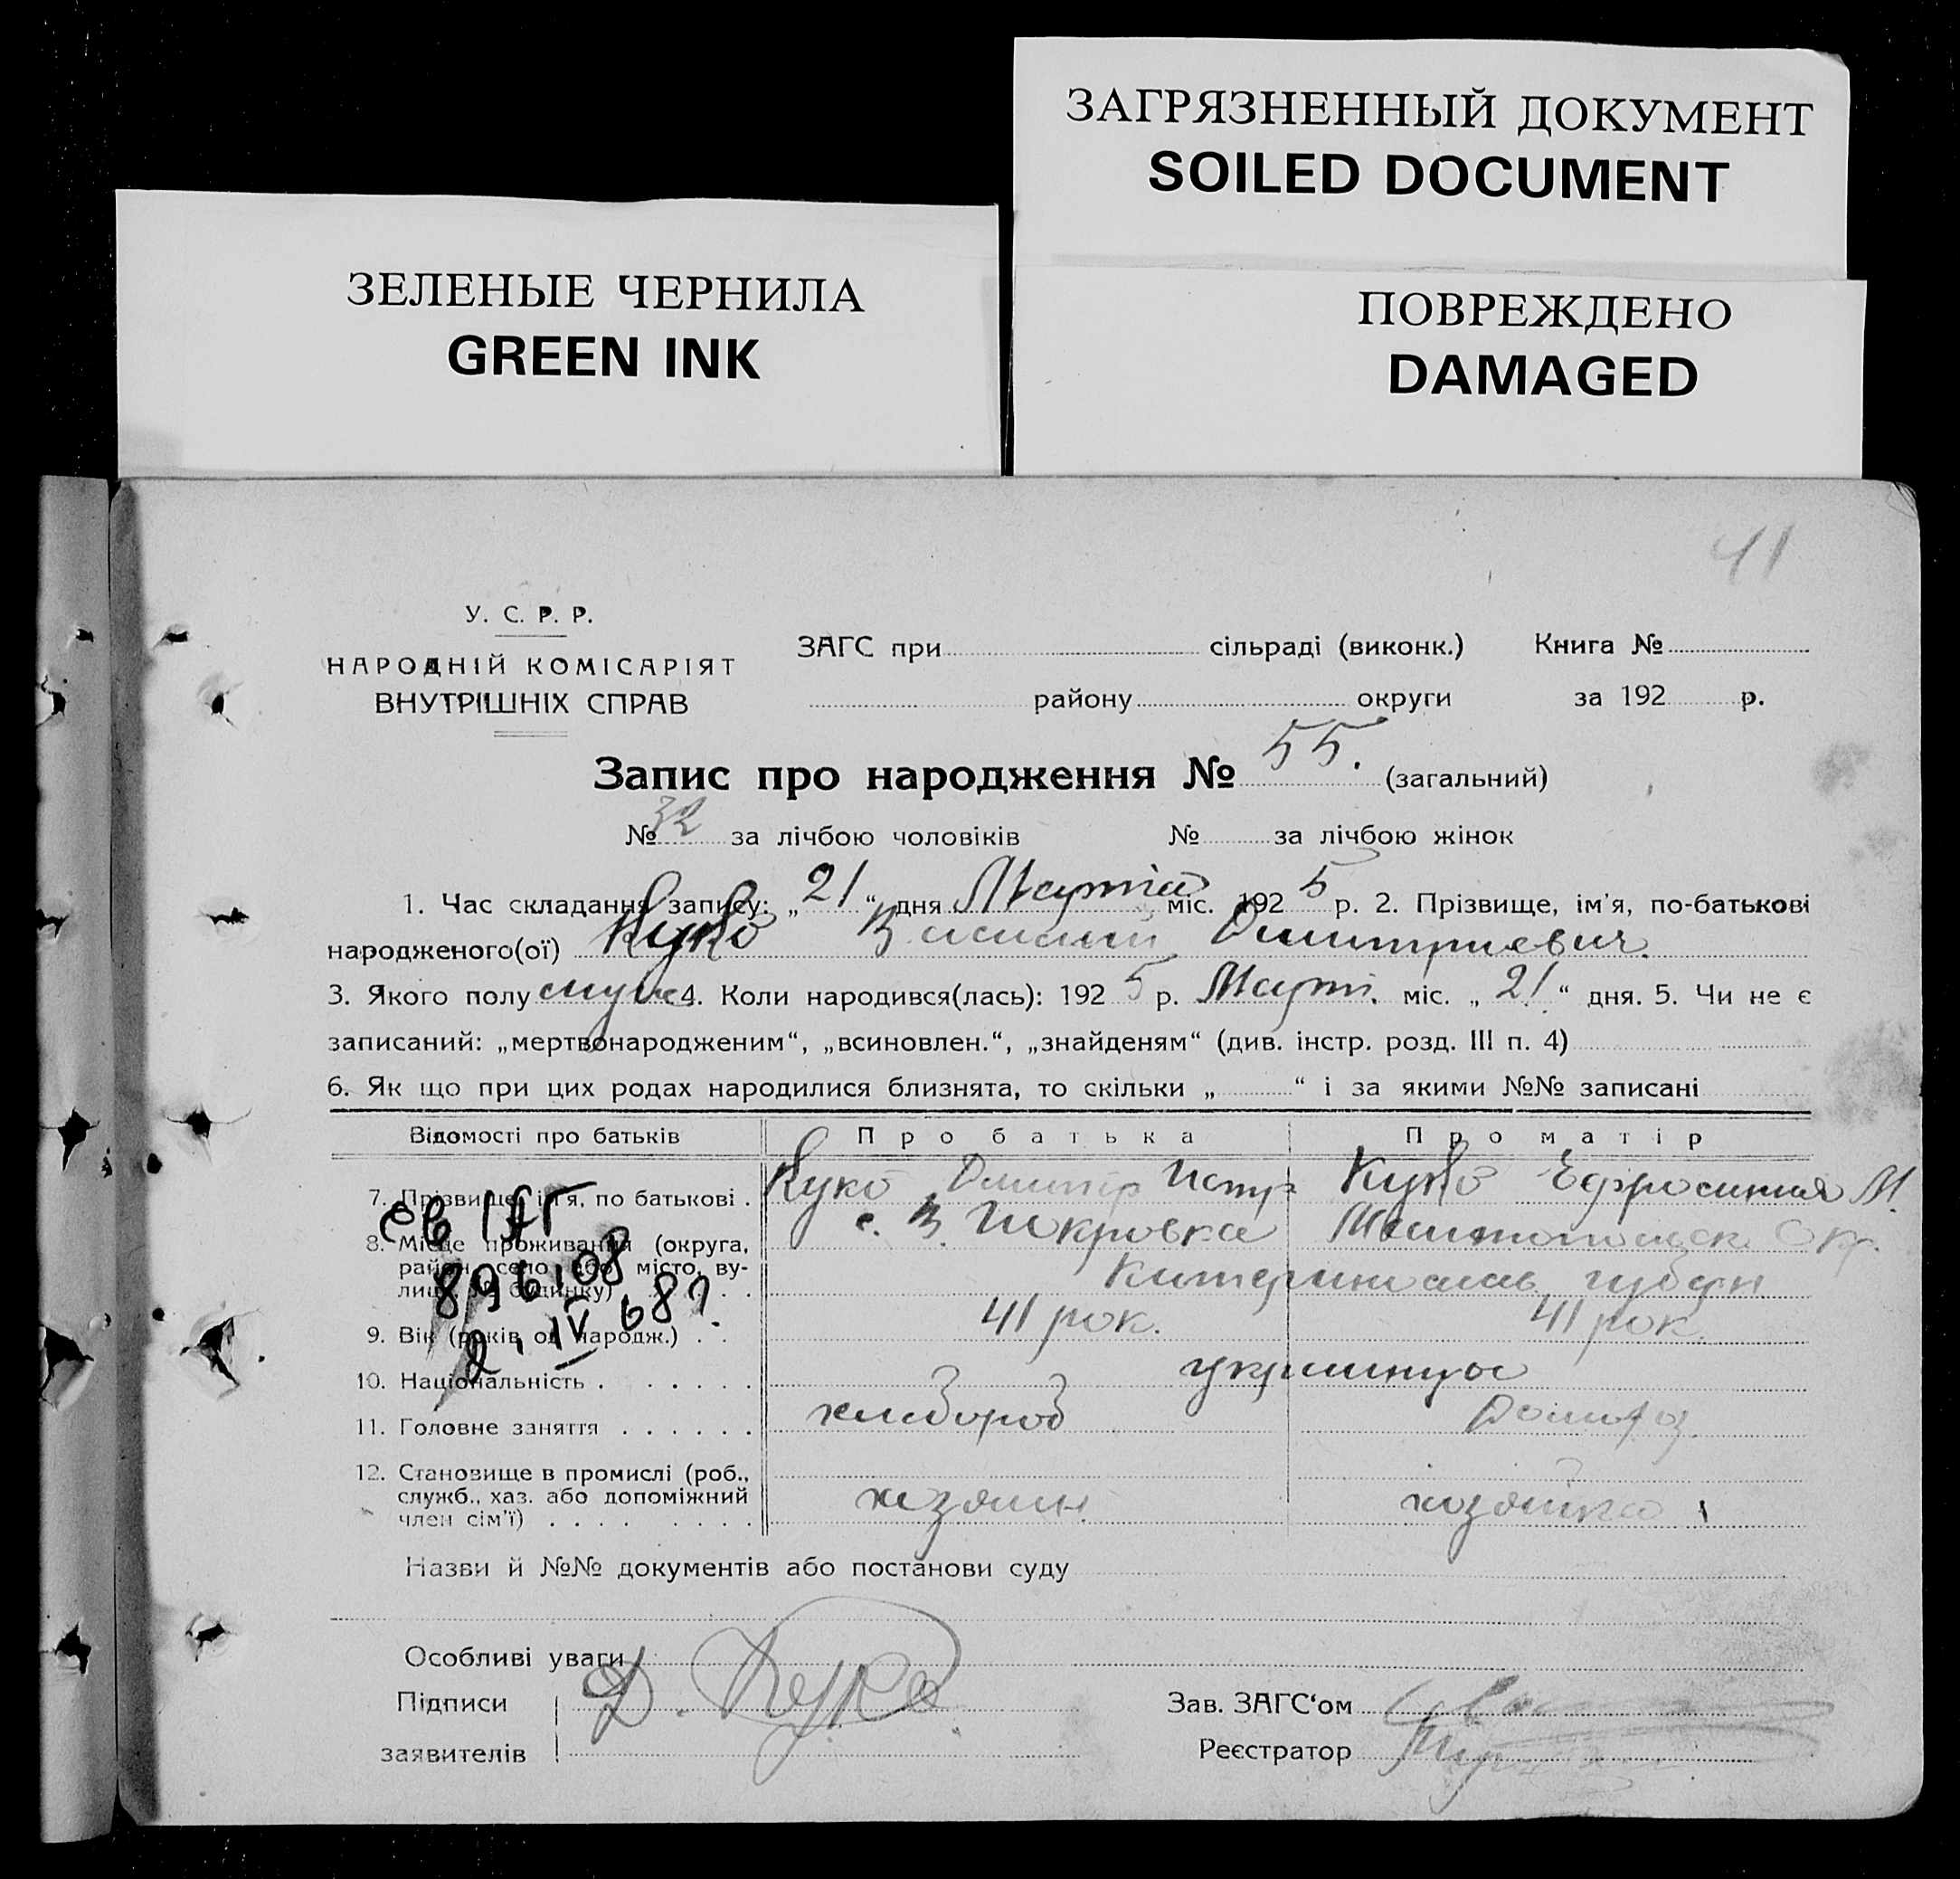 ЗАГРЯЗНЕННЫЙ ДОКУМЕНТ
SOILED DOCUMENT
ЗЕЛЕНЫЕ ЧЕРНИЛА
GREEN INK
ПОВРЕЖДЕНО
DAMAGED
41
У. С. Р. Р.
НАРОДНІЙ КОМІСАРІЯТ
ВНУТРІШНІХ СПРАВ
ЗАГС при сільраді (виконк.) Книга №
району округи за 192 р.
Запис про народження № 55. (загальний)
№ 32 за лічбою чоловіків № за лічбою жінок
1. Час складання запису: „21“ дня Марта міс. 1925 р. 2. Прізвище, ім'я, по-батькові
народженого(ої) Куко Василий Дмитриевич.
3. Якого полу муж 4. Коли народився(лась): 1925 р. Март. міс. „21“ дня. 5. Чи не є
записаний: „мертвонародженим“, „всиновлен.“, „знайденям“ (див. інстр. розд. III п. 4)
6. Як що при цих родах народилися близнята, то скільки „ “ і за якими №№ записані
Відомості про батьків Про батька Про матір
7. Прізвище, ім'я, по батькові . Куко Дмитр Куко Ефросиния М.
8. Місце проживання (округа, с. В. Покровка Мелитопольск. Окр.
район, село або місто, ву-
лиця, № будинку) . . Катеринослав. губерн
9. Вік (років од народж.) . . 41 рок. 41 рок.
10. Національність . . . . . . украинцы
11. Головне заняття . . . . . . хлибороб Домаш.
12. Становище в промислі (роб.,
служб., хаз. або допоміжний хозяин. хозяйка
член сім'ї) . . . . . . . .
896108
2. IV 687.
Назви й №№ документів або постанови суду
Особливі уваги
Підписи Д. Куко Зав. ЗАГС‘ом
заявителів Реєстратор